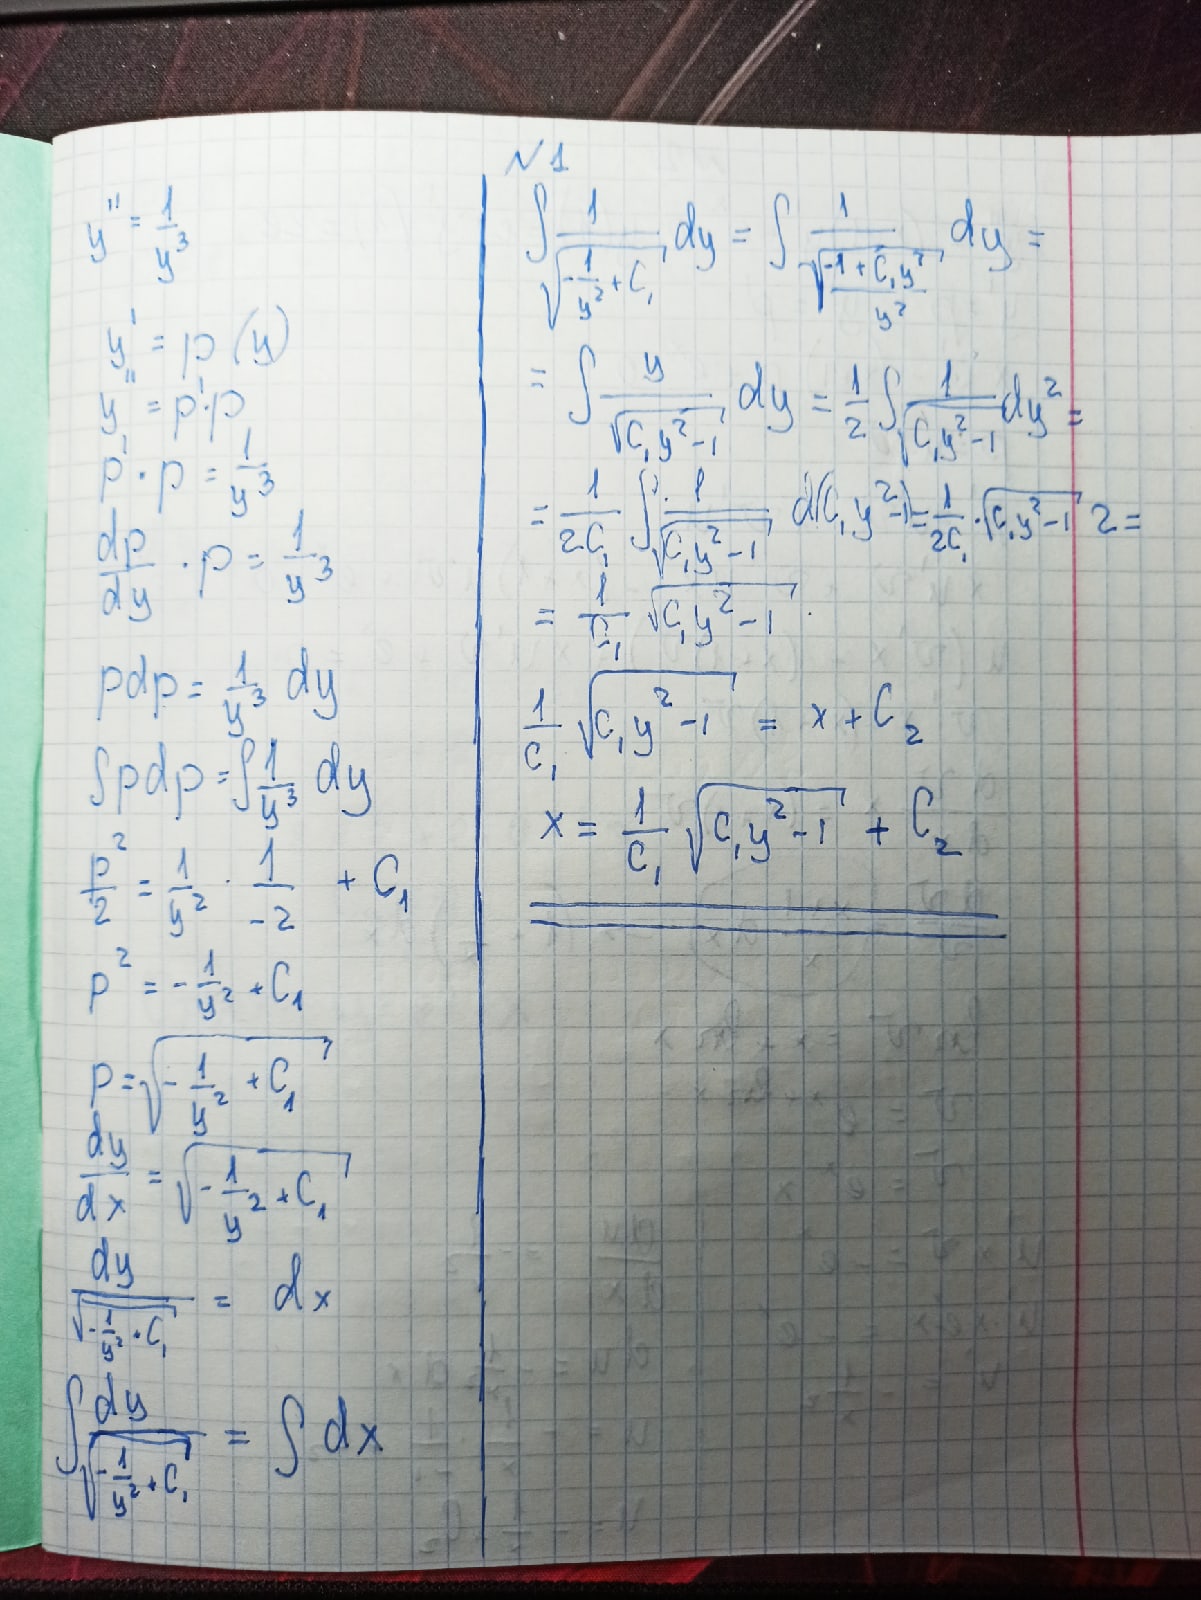 y'' = 1/y³
y' = p(y)
y'' = p'·p
p'·p = 1/y³
dp/dy · p = 1/y³
pdp = 1/y³ dy
∫pdp = ∫1/y³ dy
p²/2 = 1/y² · 1/-2 + C₁
p² = -1/y² + C₁
p = √(-1/y² + C₁)
dy/dx = √(-1/y² + C₁)
dy/√(-1/y² + C₁) = dx
∫ dy/√(-1/y² + C₁) = ∫ dx
N1
∫ 1/√(-1/y² + C₁) dy = ∫ 1/√((-1 + C₁y²)/y²) dy =
= ∫ y/√(C₁y² - 1) dy = 1/2 ∫ 1/√(C₁y² - 1) dy² =
= 1/2C₁ ∫ 1/√(C₁y² - 1) d(C₁y² - 1) = 1/2C₁ · √(C₁y² - 1) 2 =
= 1/C₁ √(C₁y² - 1).
1/C₁ √(C₁y² - 1) = x + C₂
x = 1/C₁ √(C₁y² - 1) + C₂